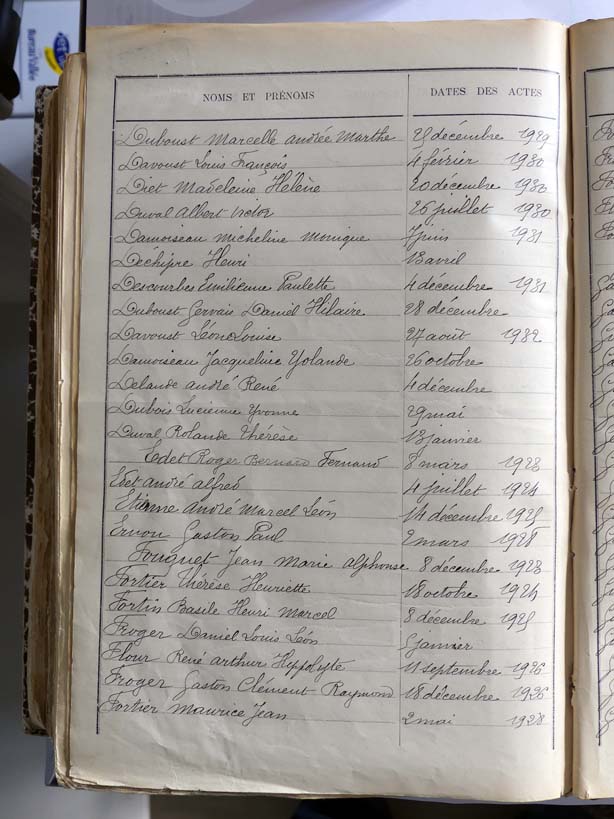 NOMS ET PRÉNOMS DATES DES ACTES
Duboust Marcelle andrée Marthe 25 décembre 1929
Davoust Louis François 4 février 1930
Diet Madeleine Hélène 20 décembre 1930
Duval Albert Victor 26 juillet 1930
Damoiseau Micheline Monique 7 juin 1931
Déchipre Henri 13 avril
Descourbes Emilienne Paulette 4 décembre 1931
Duboust Gervais Daniel Hilaire 28 décembre
Davoust Léon Louise 27 août 1932
Damoiseau Jacqueline Yolande 26 octobre
Delande andré René 4 décembre
Dubois Lucienne Yvonne 29 mai
Duval Rolande Thérèse 13 janvier
Edet Roger Bernard Fernand 8 mars 1923
Edet andré alfred 4 juillet 1924
Etienne André Marcel Léon 14 décembre 1925
Ernou Gaston Paul 2 mars 1928
Fouquet Jean Marie alphonse 8 décembre 1923
Fortier Thérèse Henriette 18 octobre 1924
Fortin Basile Henri Marcel 8 décembre 1925
Froger Daniel Louis Léon janvier
Flour René arthur Hippolyte 11 septembre 1926
Froger Gaston Clément Raymond 18 décembre 1926
Fortier Maurice Jean 2 mai 1928